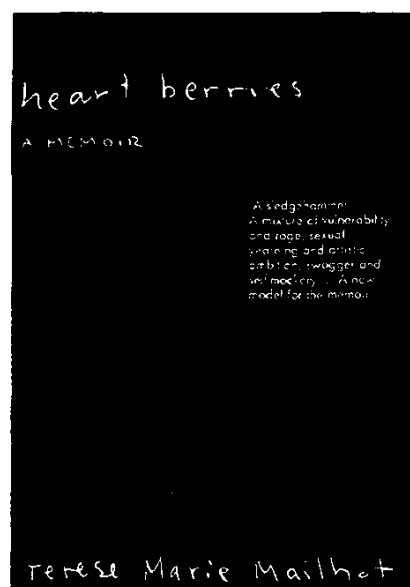 heart berries
A MEMOIR
A sledgehammer
A mixture of vulnerability
and rage, sexual
yearning and artistic
ambition, swagger and
self mockery . . A new
model for the memoir
Terese Marie Mailhot